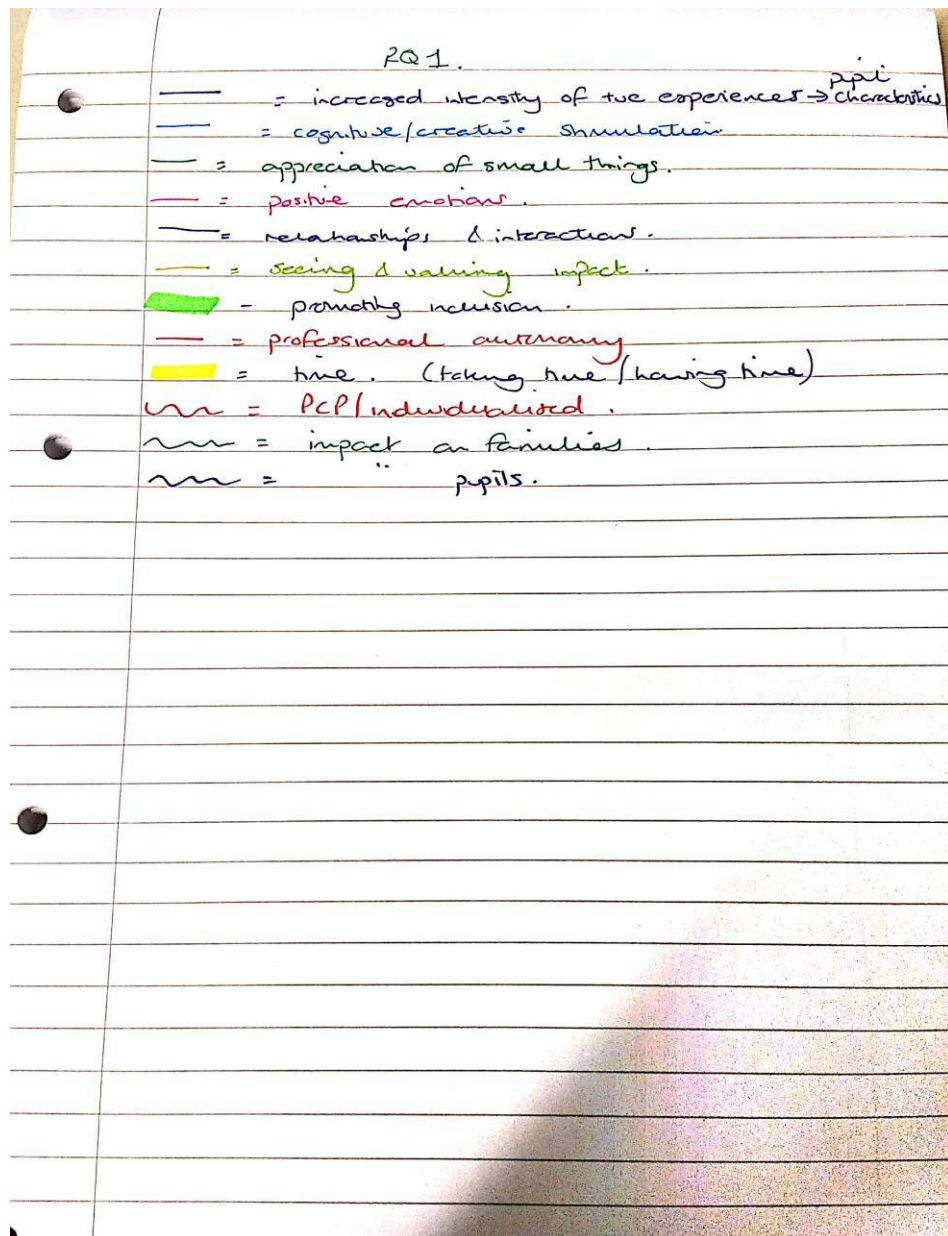 RQ1.
= increased intensity of +ve experiences → ppl characteristics
= cognitive/creative stimulation
= appreciation of small things.
= positive emotions.
= relationships & interactions.
= seeing & valuing impact.
- promoting inclusion.
= professional autonomy
= time. (taking time/having time)
= PCP/individualised.
= impact on families.
= " pupils.